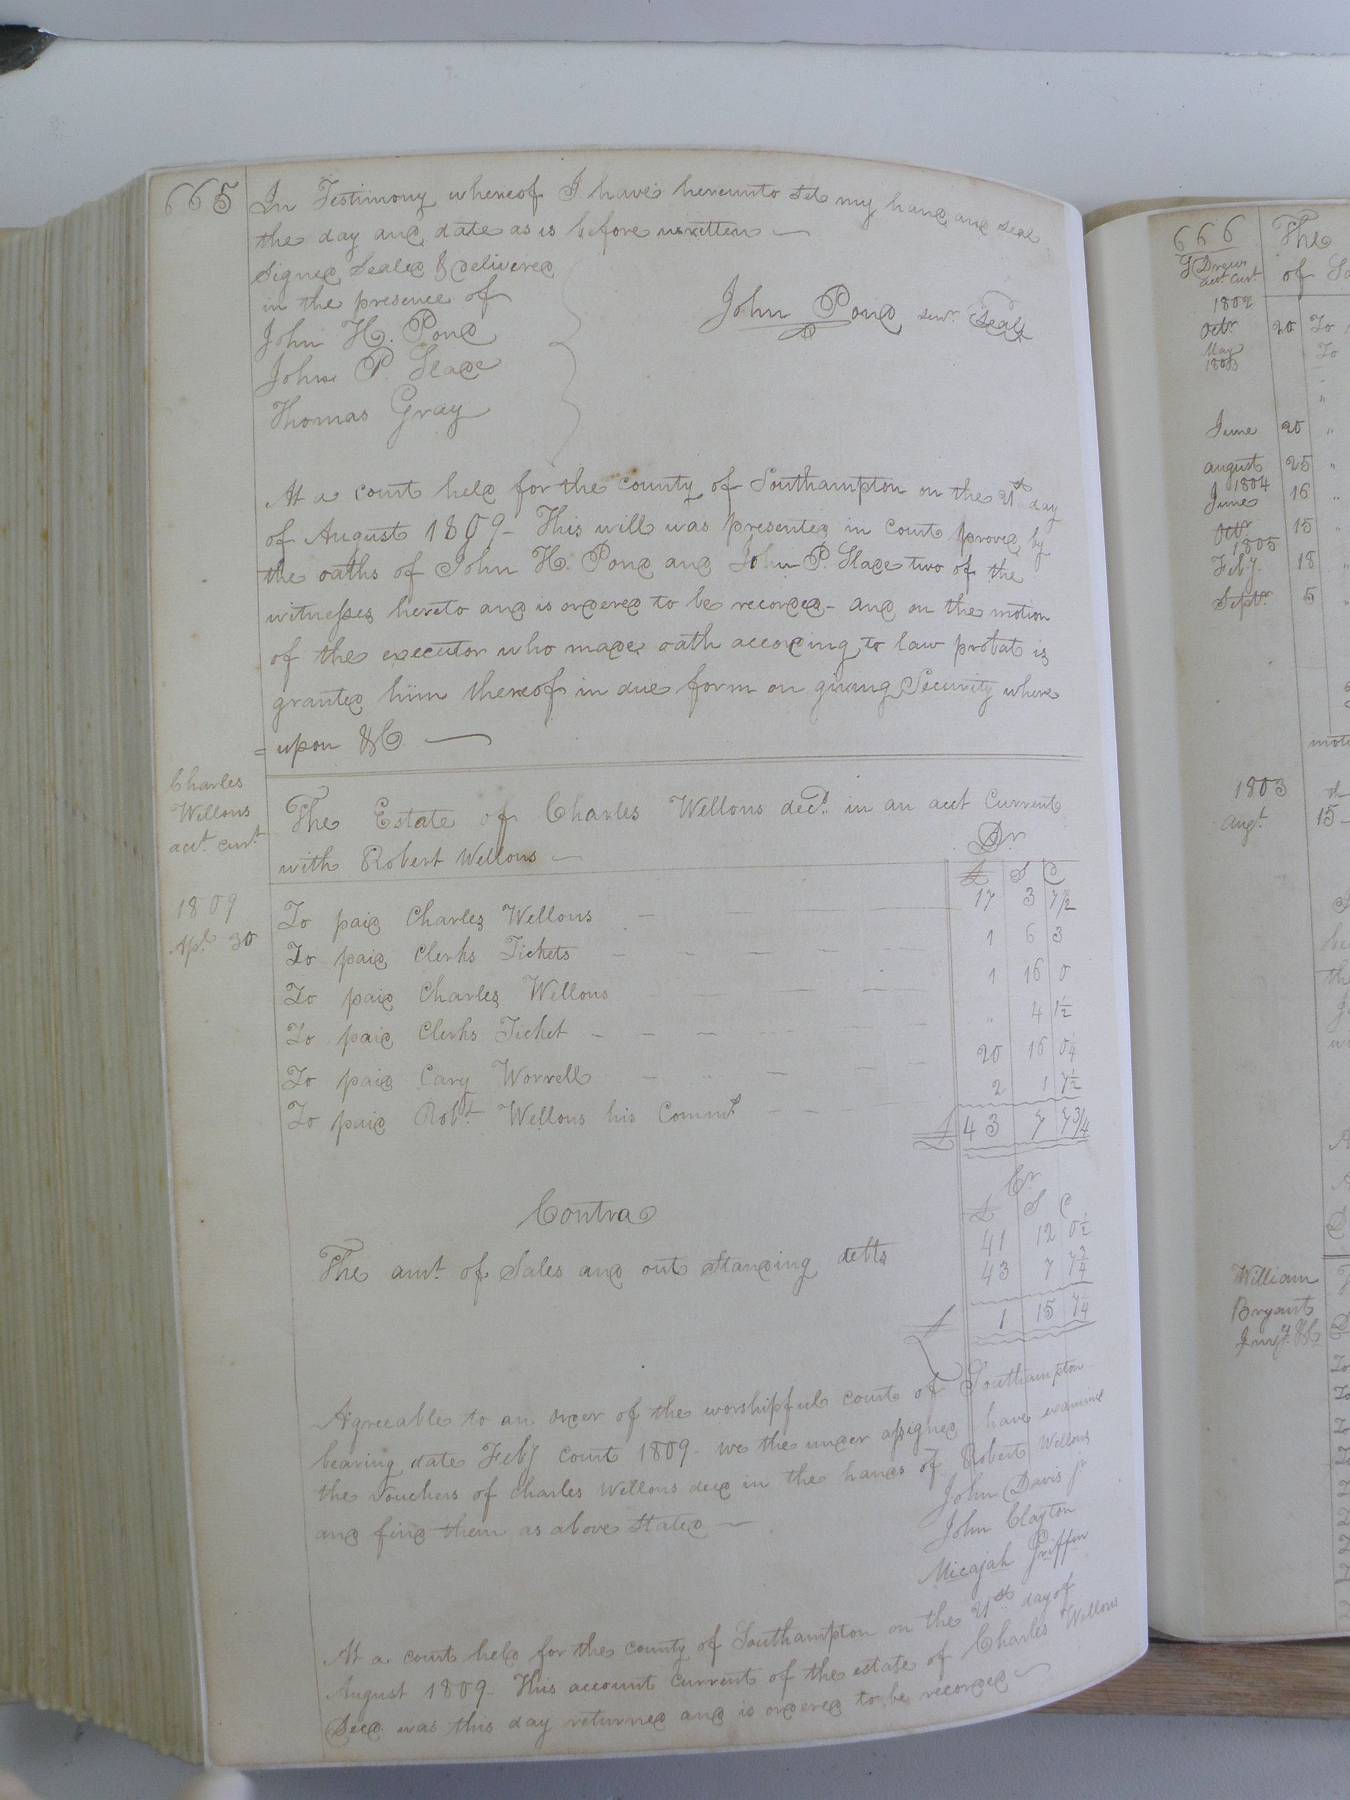 665
In Testimony whereof I have hereunto set my hand and seal
the day and date as is before written
Signed Sealed & delivered
in the presence of
John H. Pond
John P. Slade
Thomas Gray
John Pond senr. Seal
At a court held for the county of Southampton on the 21st day
of August 1809 - This will was presented in court proved by
the oaths of John H. Pond and John P. Slade two of the
witnesses hereto and is ordered to be recorded - and on the motion
of the executor who made oath according to law probat is
granted him thereof in due form on giving Security where
= upon &C
Charles
Wellons
acct. curt.
The Estate of Charles Wellons decd. in an acct Current
with Robert Wellons
Dr
£ S C
1809
Apl. 30
To paid Charles Wellons 17 3 7 1/2
To paid Clerks Tickets 1 6 3
To paid Charles Wellons 1 16 0
To paid Clerks Ticket " 4 1 1/2
To paid Cary Worrell 20 16 0 1/4
To paid Robt. Wellons his Commd 2 1 7 1/2
£ 43 7 7 3/4
Cr
£ S C
Contra
41 12 0 1/2
The amt. of Sales and out Standing debts 43 7 7 3/4
£ 1 15 7 1/4
Agreeable to an order of the worshipful court of Southampton
bearing date Feby court 1809 - we the under assigned have examined
the vouchers of Charles Wellons decd in the hands of Robert Wellons
and find them as above stated
John Davis jr
John Clayton
Micajah Griffin
At a court held for the county of Southampton on the 21st day of
August 1809 - This account current of the estate of Charles Wellons
Decd. was this day returned and is ordered to be recorded
666 The
J Drews
acct. curt. of
1802
Octr. 20 To
May To
1803
June 20 "
august 25 "
1804
June 16 "
Octr 15 "
1805
Feby. 18 "
Septr. 5 "
1803
augt. 15
William
Bryants
Invy. &C